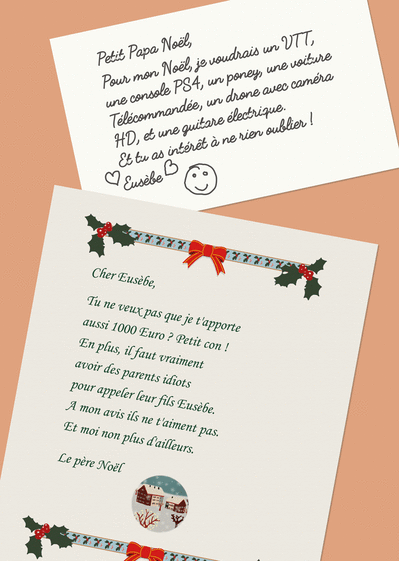 Petit Papa Noël,
Pour mon Noël, je voudrais un VTT,
une console PS4, un poney, une voiture
Télécommandée, un drone avec caméra
HD, et une guitare électrique.
Et tu as intérêt à ne rien oublier !
Eusèbe
Cher Eusèbe,
Tu ne veux pas que je t'apporte
aussi 1000 Euro ? Petit con !
En plus, il faut vraiment
avoir des parents idiots
pour appeler leur fils Eusèbe.
A mon avis ils ne t'aiment pas.
Et moi non plus d'ailleurs.
Le père Noël